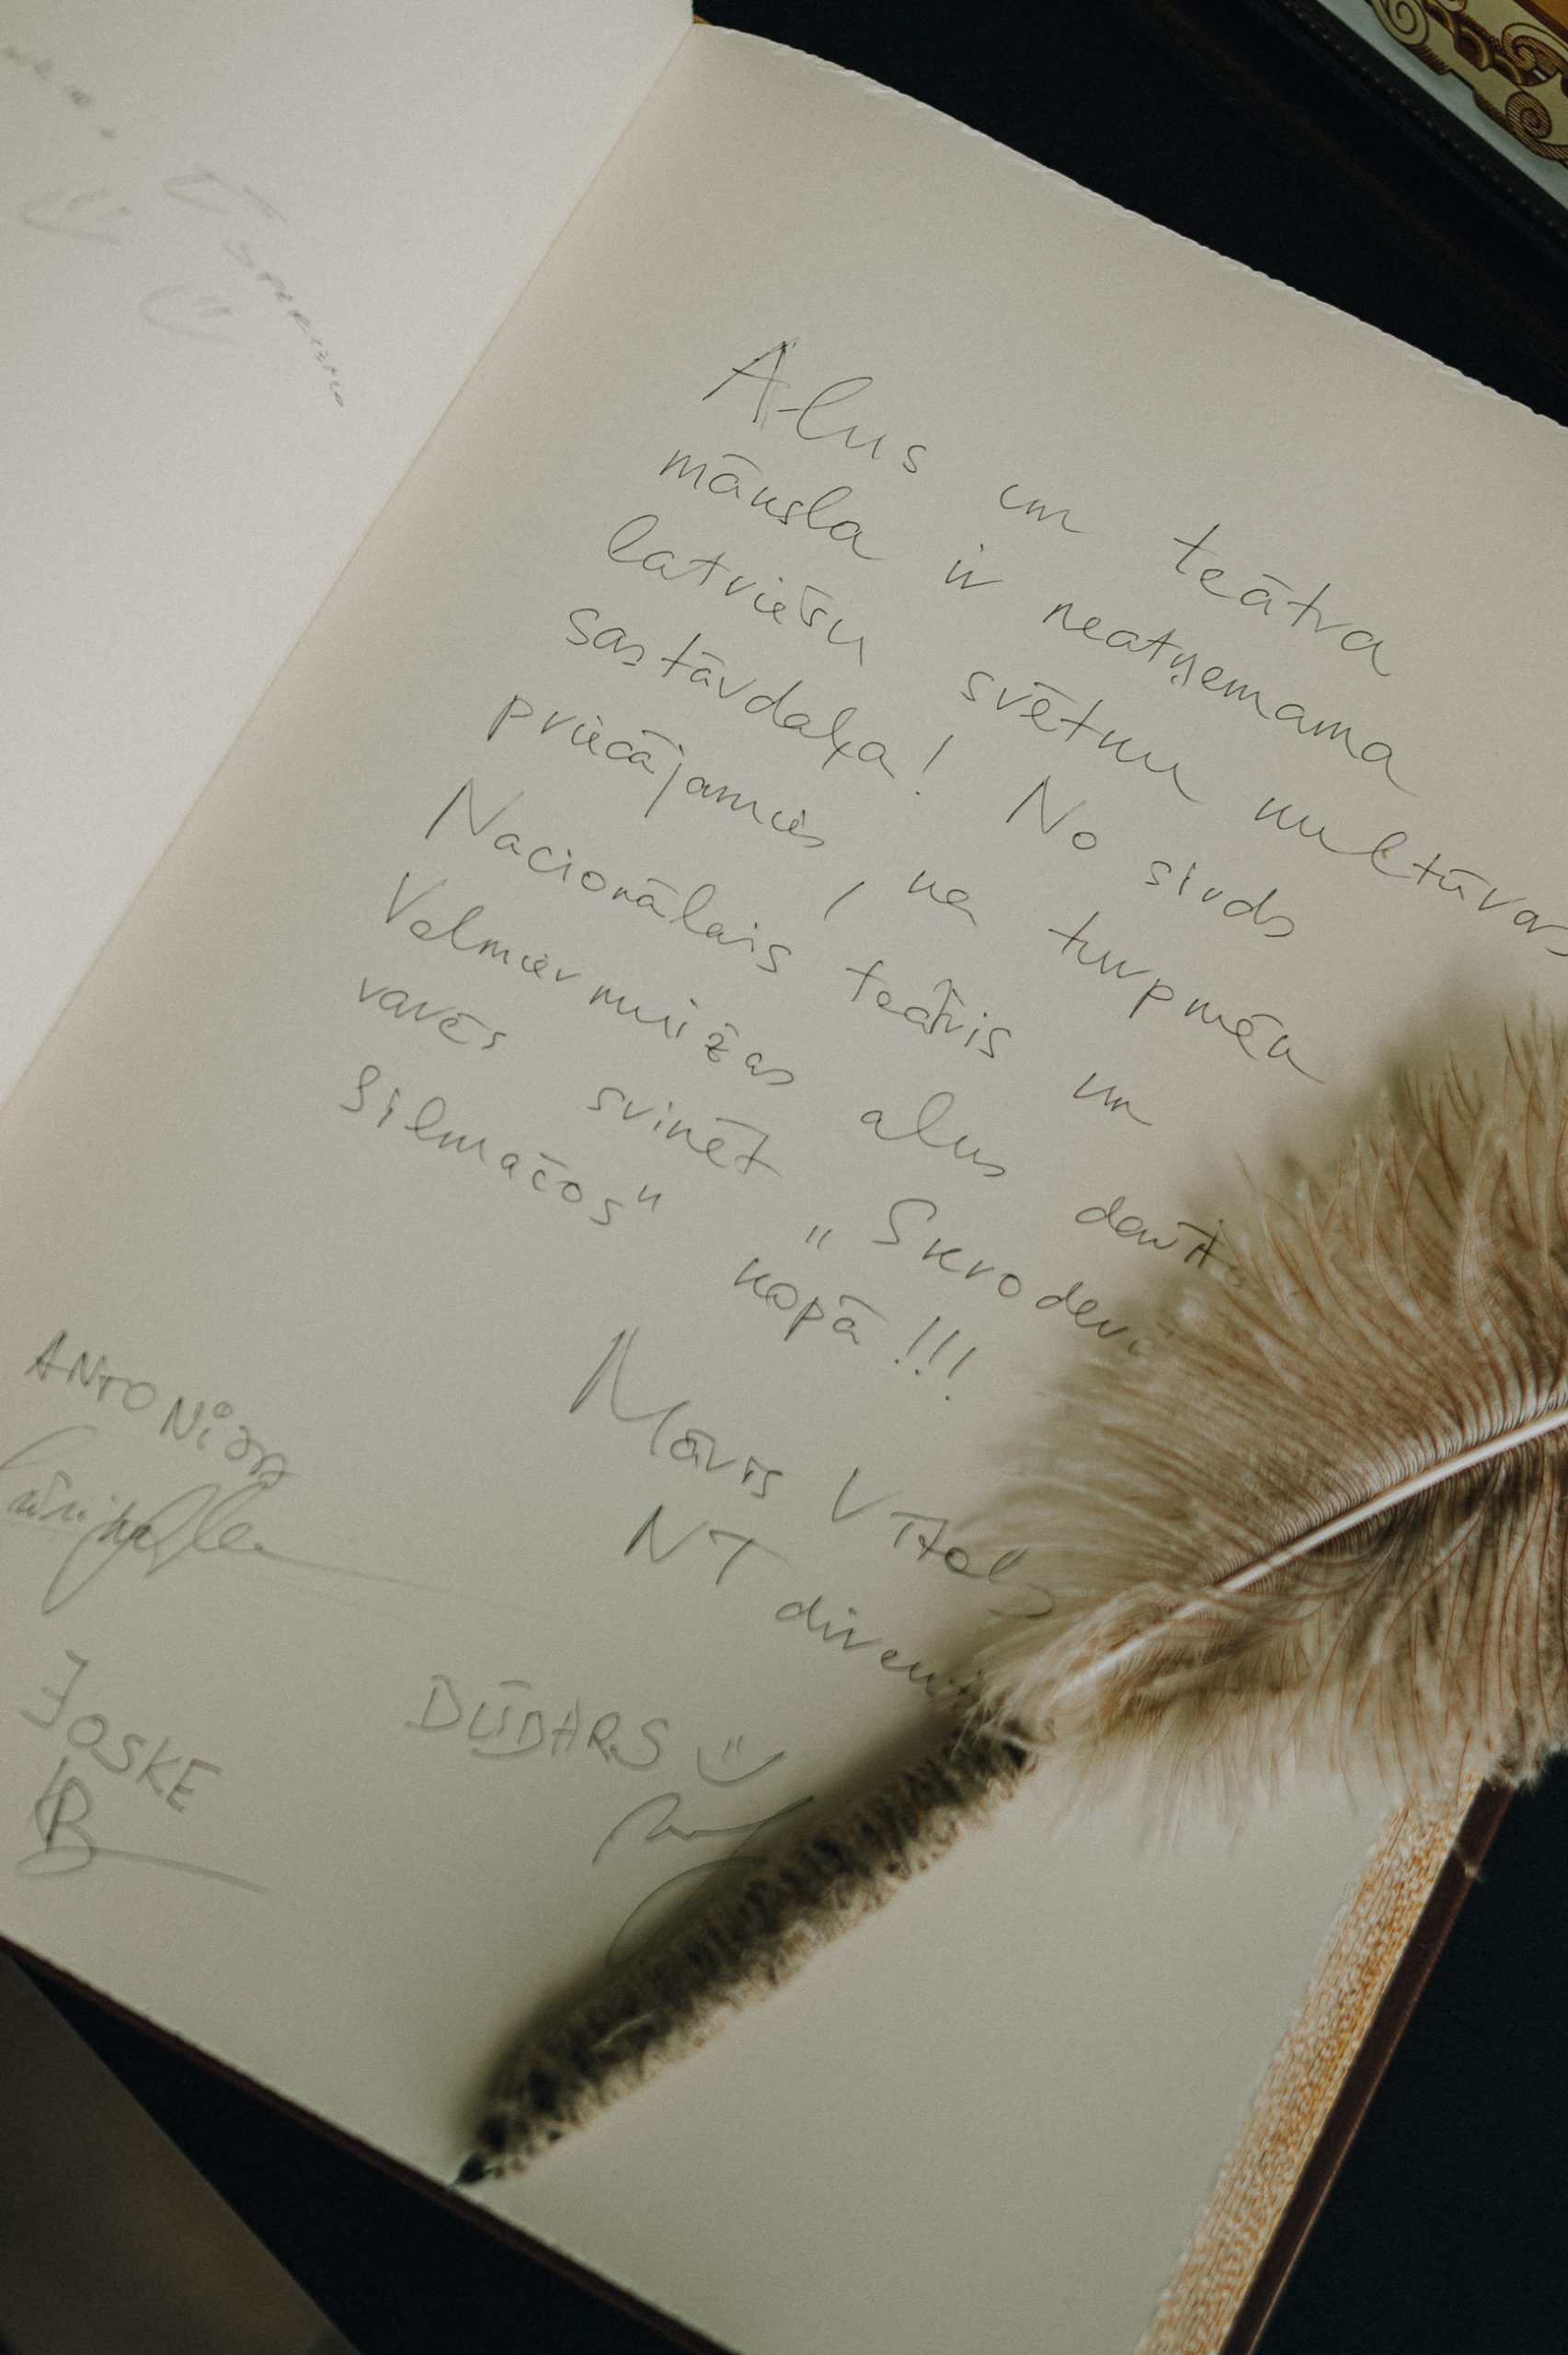 Alus un teātra
māksla ir neatņemama
latviešu svētku kultūras
sastāvdaļa! No sirds
priecājamies, ka turpmāk
Nacionālais teātris un
Valmiermuižas alus darīta
varēs svinēt „Skroderd
Silmačos“ kopā!!!
Māris Vītols
NT direkt
ANTONIJA
JOSKE
DŪDARS